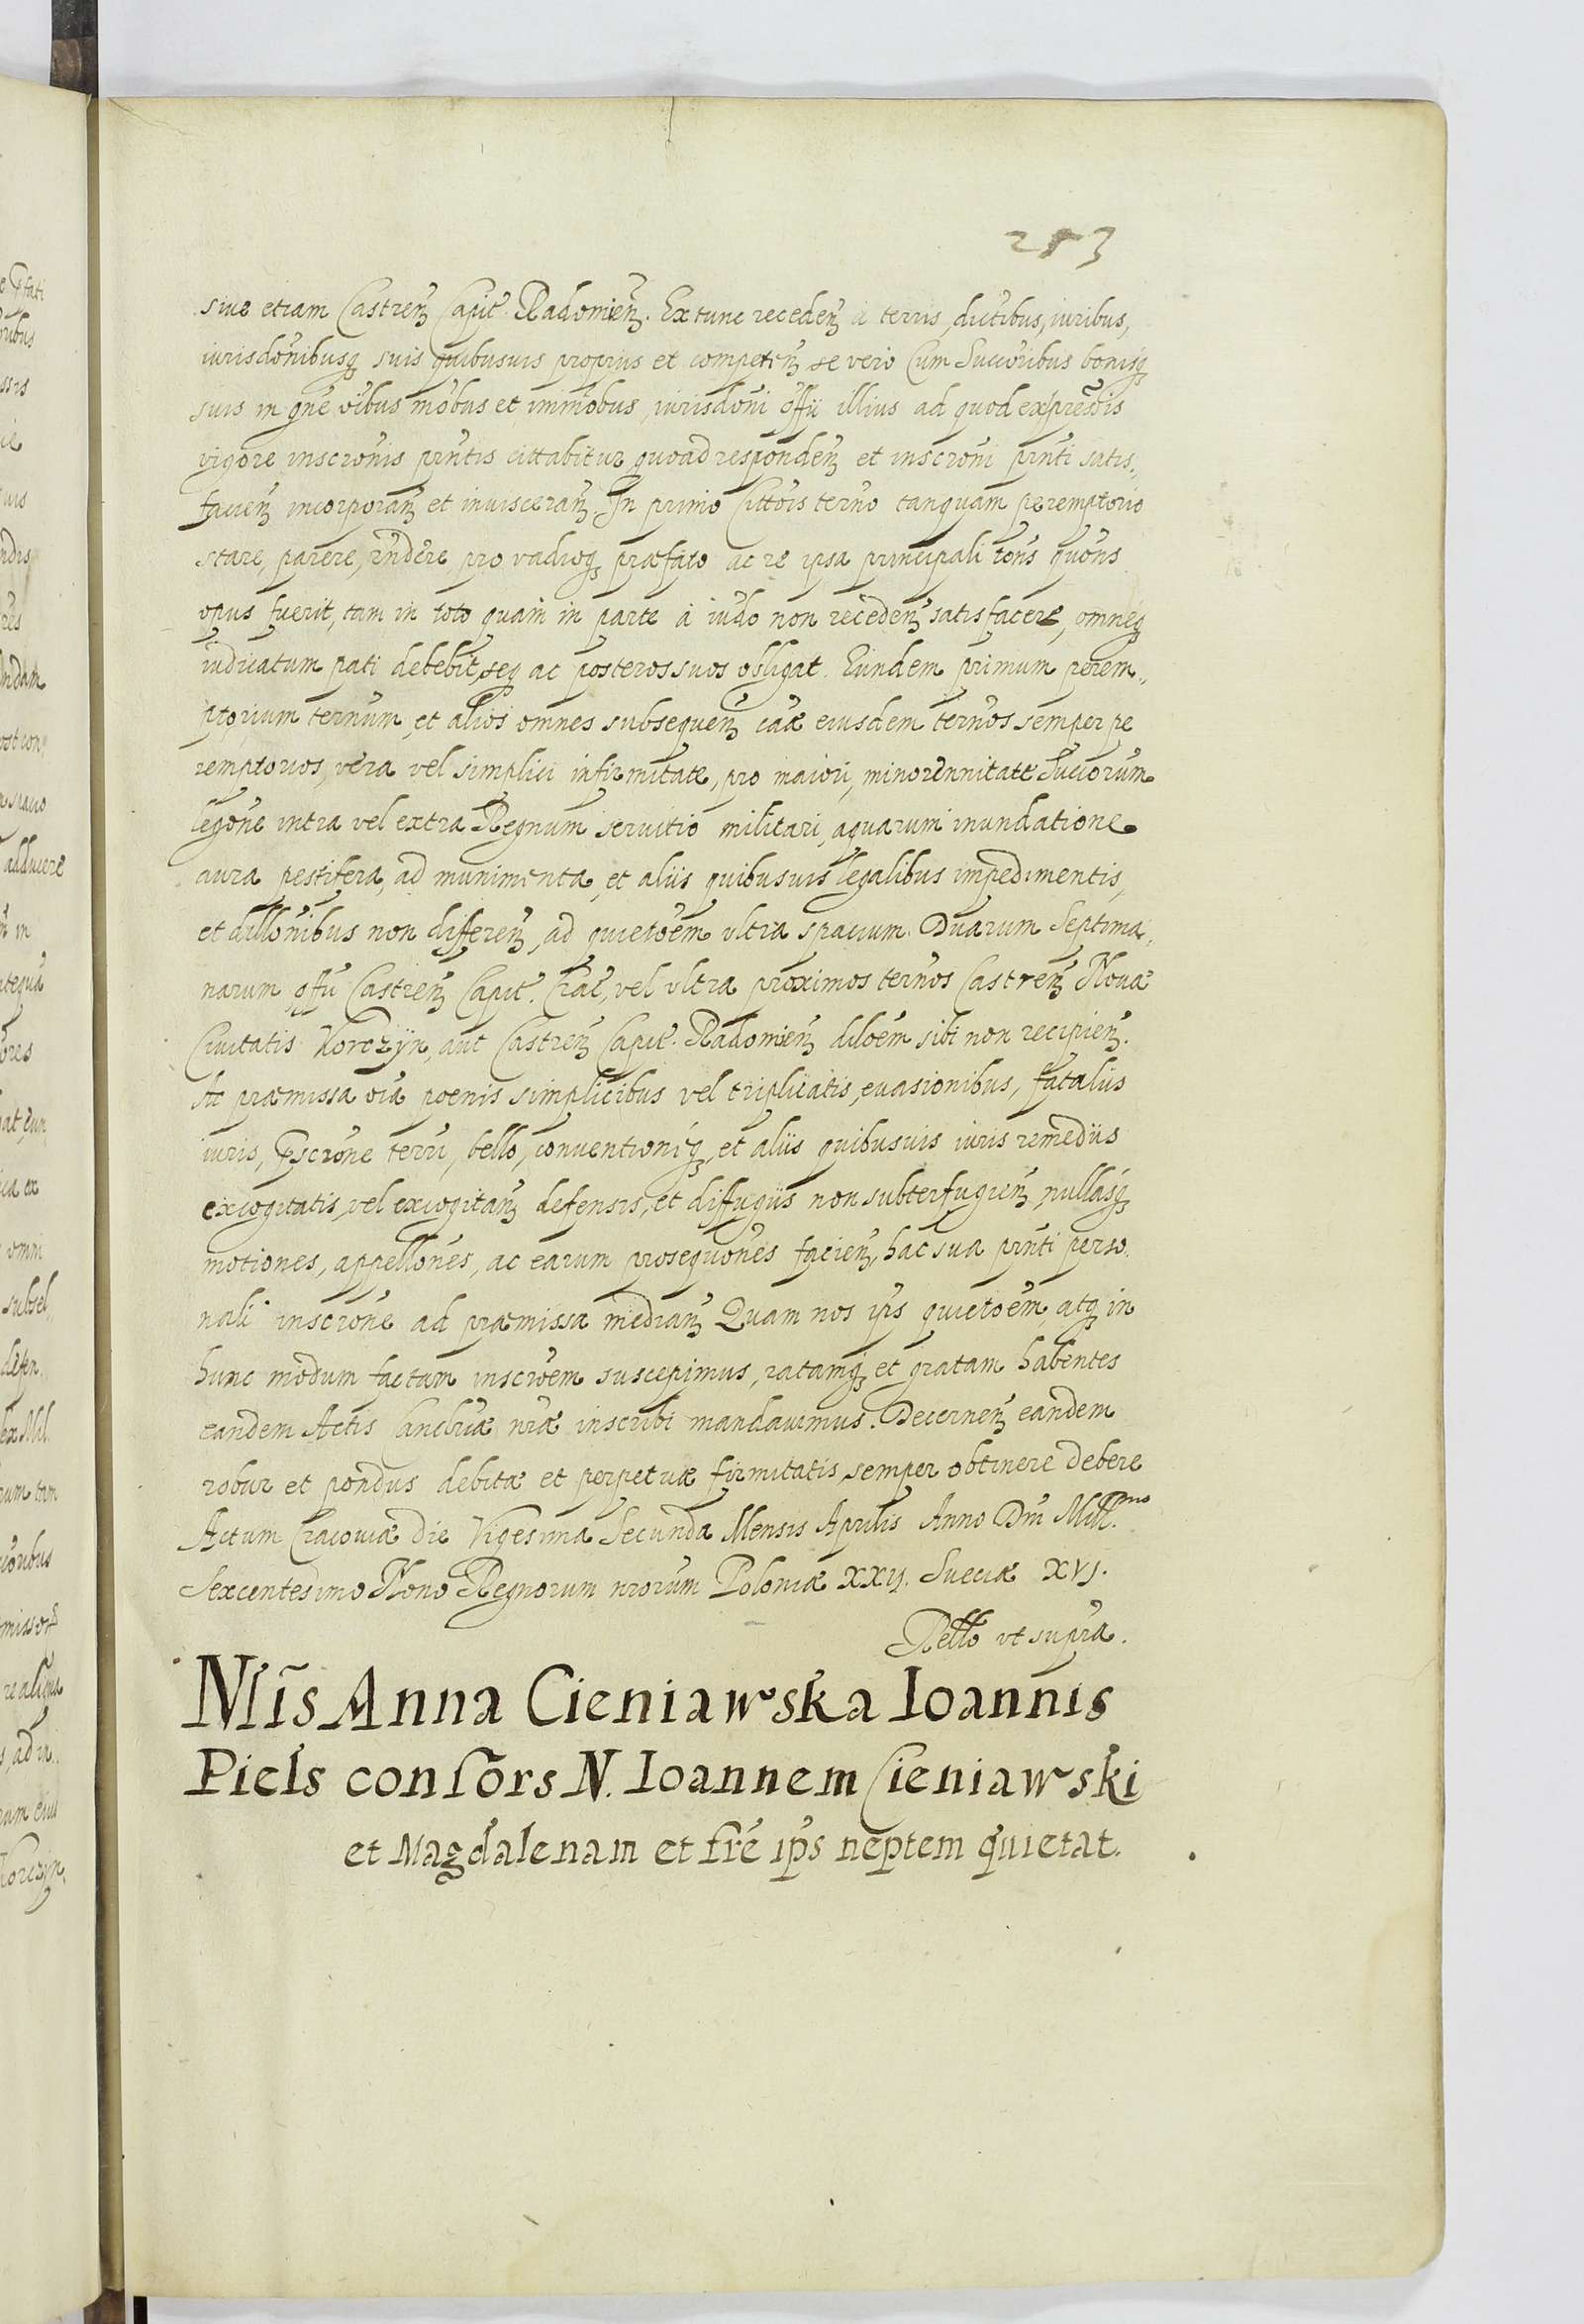 253
sive etiam Castreñ Capit. Radomień. Ex tunc recedeñ à terris, dictibus, iuribus,
iurisdonibusq; suis quibusuis proprius et competeñ se vero Cum Succoribus bonisq;
suis in gñe oibus mobus et immobus, iurisdoni offii illius ad quod ex præmis
vigore inscronis prntis cittabitur quoad respondeñ et inscroni prnti satis,,
facieñ incorporañ et inuiscerañ. In primo Cittois terno tanquam peremptorio
stare, parere, rñdere, pro vadioq; præfato ac re ipsa principali tons quons
opus fuerit, tam in toto quam in parte à iudo non recedeñ satisfacere, omneq;
iudicatum pati debebit, seq; ac posteros suos obligat. Eundem primum perem,,
ptorium ternum, et alios omnes subsequeñ cãæ eiusdem ternos semper pe
remptorios, vera vel simplici infirmitate, pro maiori, minorennitate Succorum
legone intra vel extra Regnum seruitio militari, aquarum inundatione
aura pestifera, ad munimenta, et aliis quibusuis legalibus impedimentis,
et dillonibus non differeñ, ad quietoem vltra spacium Duarum Septima,
narum offii Castreñ Capit. Crac, vel vltra proximos ternos Castreñ Nouæ
Ciuitatis Korczÿn, aut Castreñ Capit. Radomień diloem sibi non recipieñ.
At præmissa oia poenis simplicibus vel triplicatis, euasionibus, fataliis
iuris, pscrone terri, bello, conuentioniq;, et aliis quibusuis iuris remediis
excogitatis, vel excogitañ defensis, et diffugiis non subterfugieñ, nullasq;
motiones, appellones, ac earum prosequones facieñ, hac sua prnti perso.
nali inscrone ad præmissa mediañ Quam nos ips quietoem, atq; in
hunc modum factam inscroem suscepimus, ratamq; et gratam habentes
eandem Actis Cancllriæ nræ inscribi mandauimus. Decerneñ eandem
robur et pondus debitæ et perpetuæ firmitatis, semper obtinere debere
Actum Cracouiæ die Vigesima Secunda Mensis Aprilis Anno Dni Mill.mo
Sexcentesimo Nono Regnorum nrorum Poloniæ XXIJ. Sueciæ XVJ.
Rello vt supra.
Nlis Anna Cieniawska Ioannis
Piels consors N. Ioannem Cieniawski
et Magdalenam et fré ips neptem quietat.